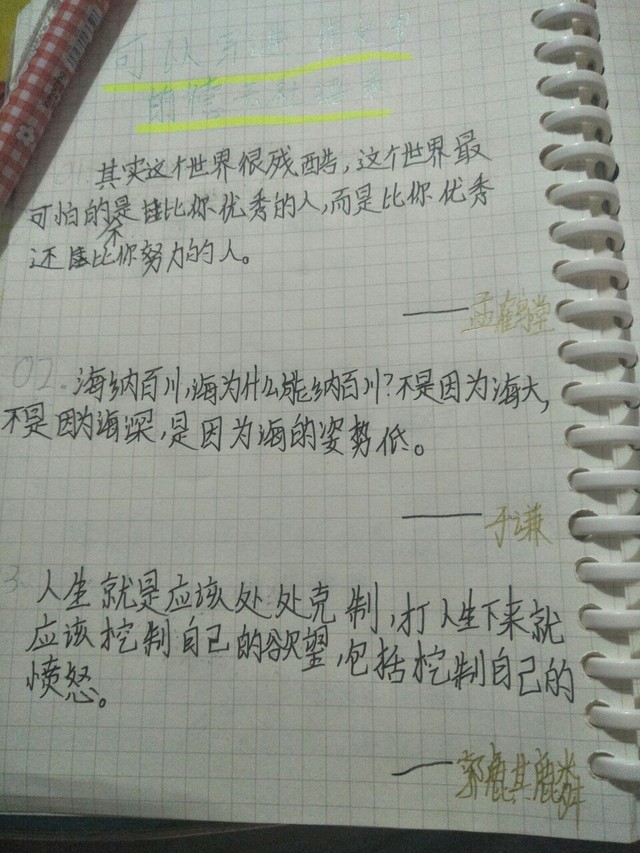 可以
的德云社语录
01. 其实这个世界很残酷,这个世界最
可怕的是比你优秀的人,而是比你优秀
不
还比你努力的人。
——孟鹤堂
02. 海纳百川,海为什么能纳百川?不是因为海大,
不是因为海深,是因为海的姿势低。
——于谦
3. 人生就是应该处处克制,打人生下来就
应该控制自己的欲望,包括控制自己的
愤怒。
——郭麒麟